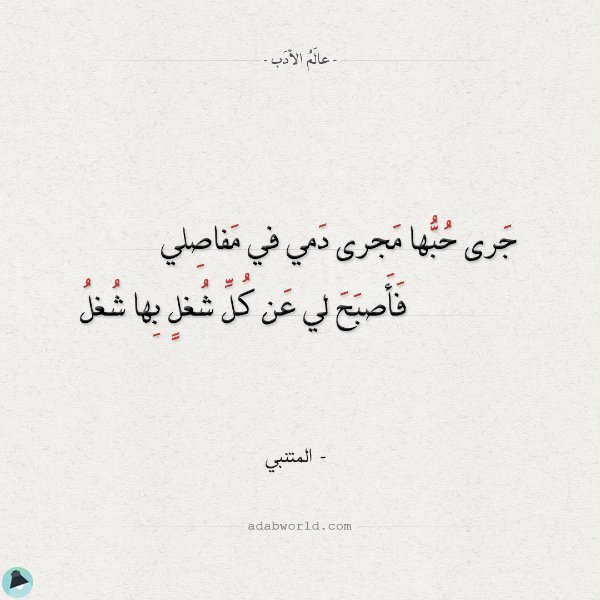 - عالَمُ الأدَب -
جَرى حُبُّها مَجرى دَمي في مَفاصِلي
فَأَصبَحَ لي عَن كُلِّ شُغلٍ بِها شُغلُ
- المتنبي
adabworld.com